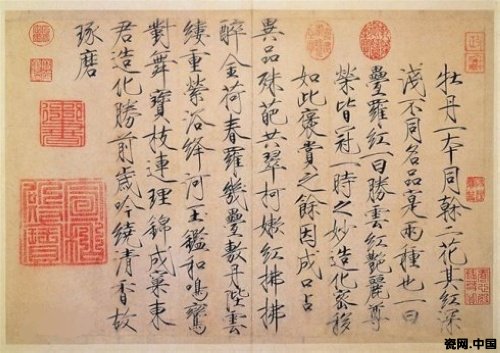 牡丹一本同幹二花其紅深
淺不同名品寔兩種也一曰
疊羅紅一曰勝雲紅艷麗尊
榮皆冠一時之妙造化密移
如此褒賞之餘因成口占
異品殊葩共翠柯嫩紅拂拂
醉金荷春羅幾疊敷丹陛雲
縷重縈浴絳河玉鑑和鳴鸞
對舞寶枝連理錦成窠東
君造化勝前歲吟繞清香故
琢磨
瓷网.中国